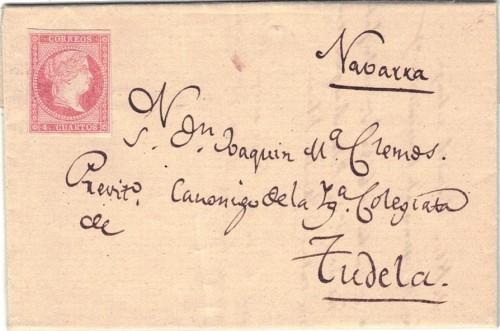 CORREOS
4 CUARTOS
Navarra
S. Dn. Joaquin Mª Cremos.
Previto. Canonigo de la Ygª Colegiata
de
Tudela.